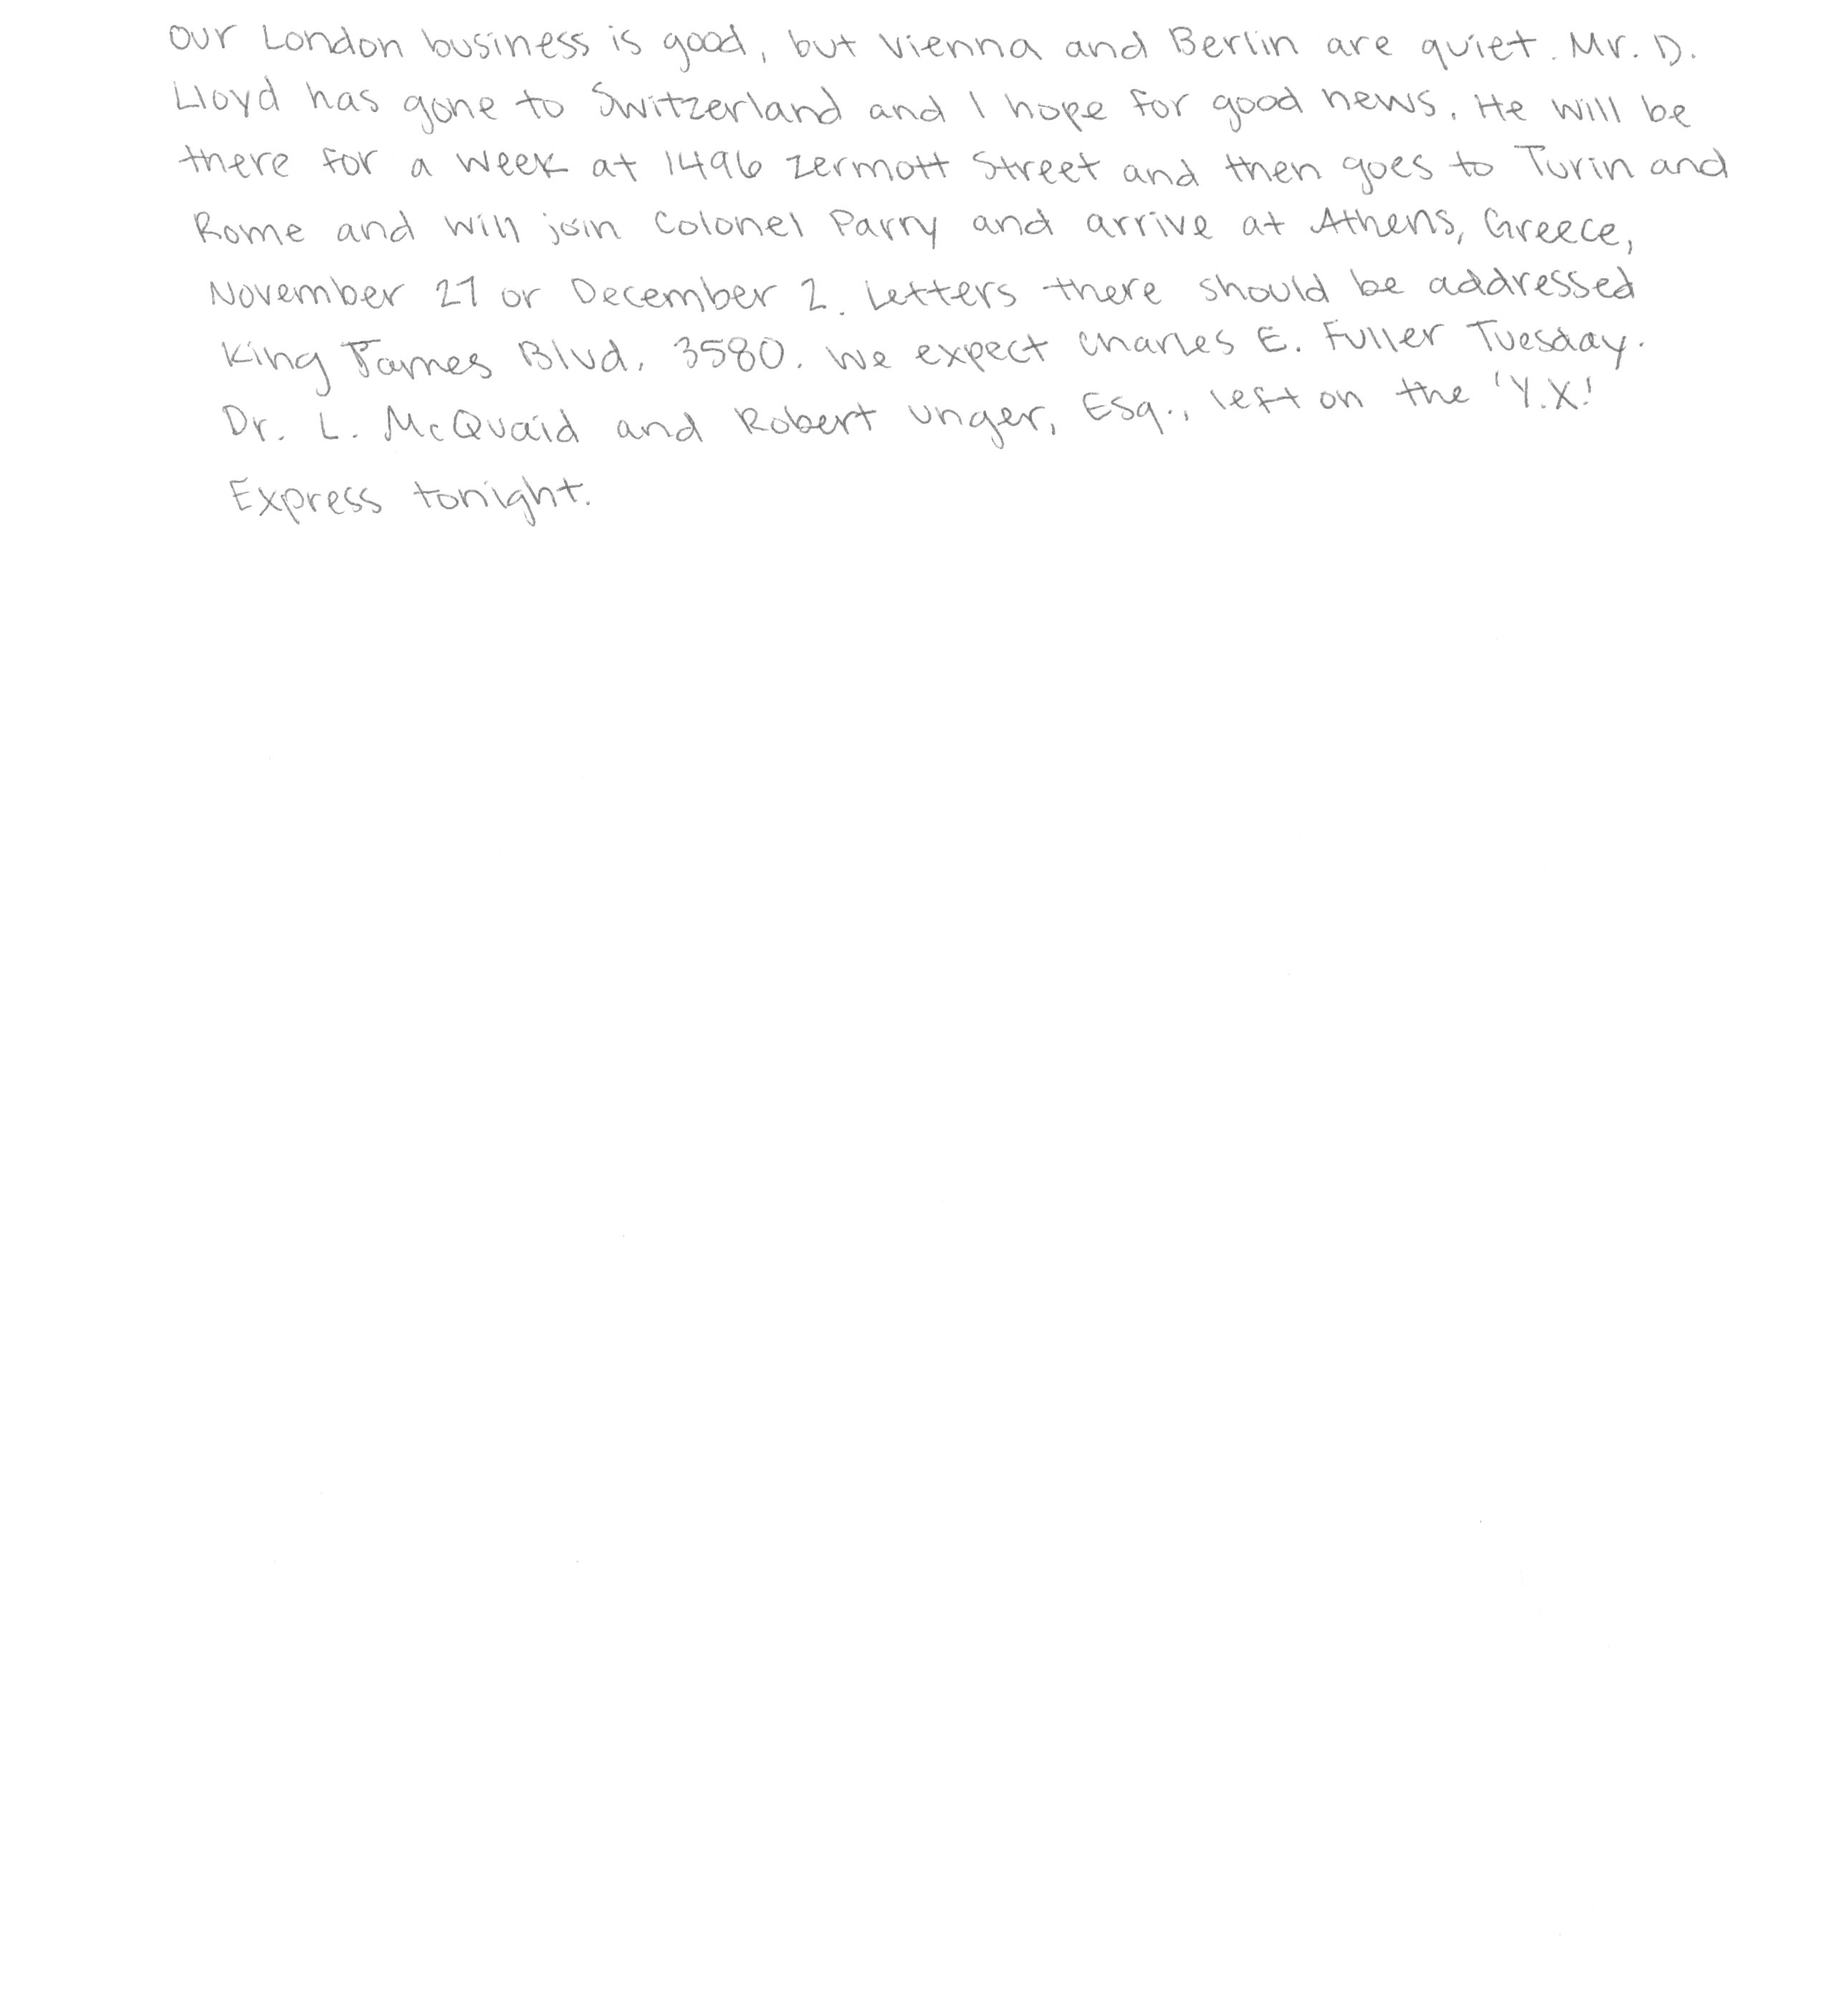 Our London business is good, but Vienna and Berlin are quiet. Mr. D.
Lloyd has gone to Switzerland and I hope for good news. He will be
there for a week at 1496 Zermott Street and then goes to Turin and
Rome and will join Colonel Parry and arrive at Athens, Greece,
November 27 or December 2. Letters there should be addressed
King James Blvd. 3580. We expect Charles E. Fuller Tuesday.
Dr. L. McQuaid and Robert Unger, Esq., left on the 'Y.X.'
Express tonight.